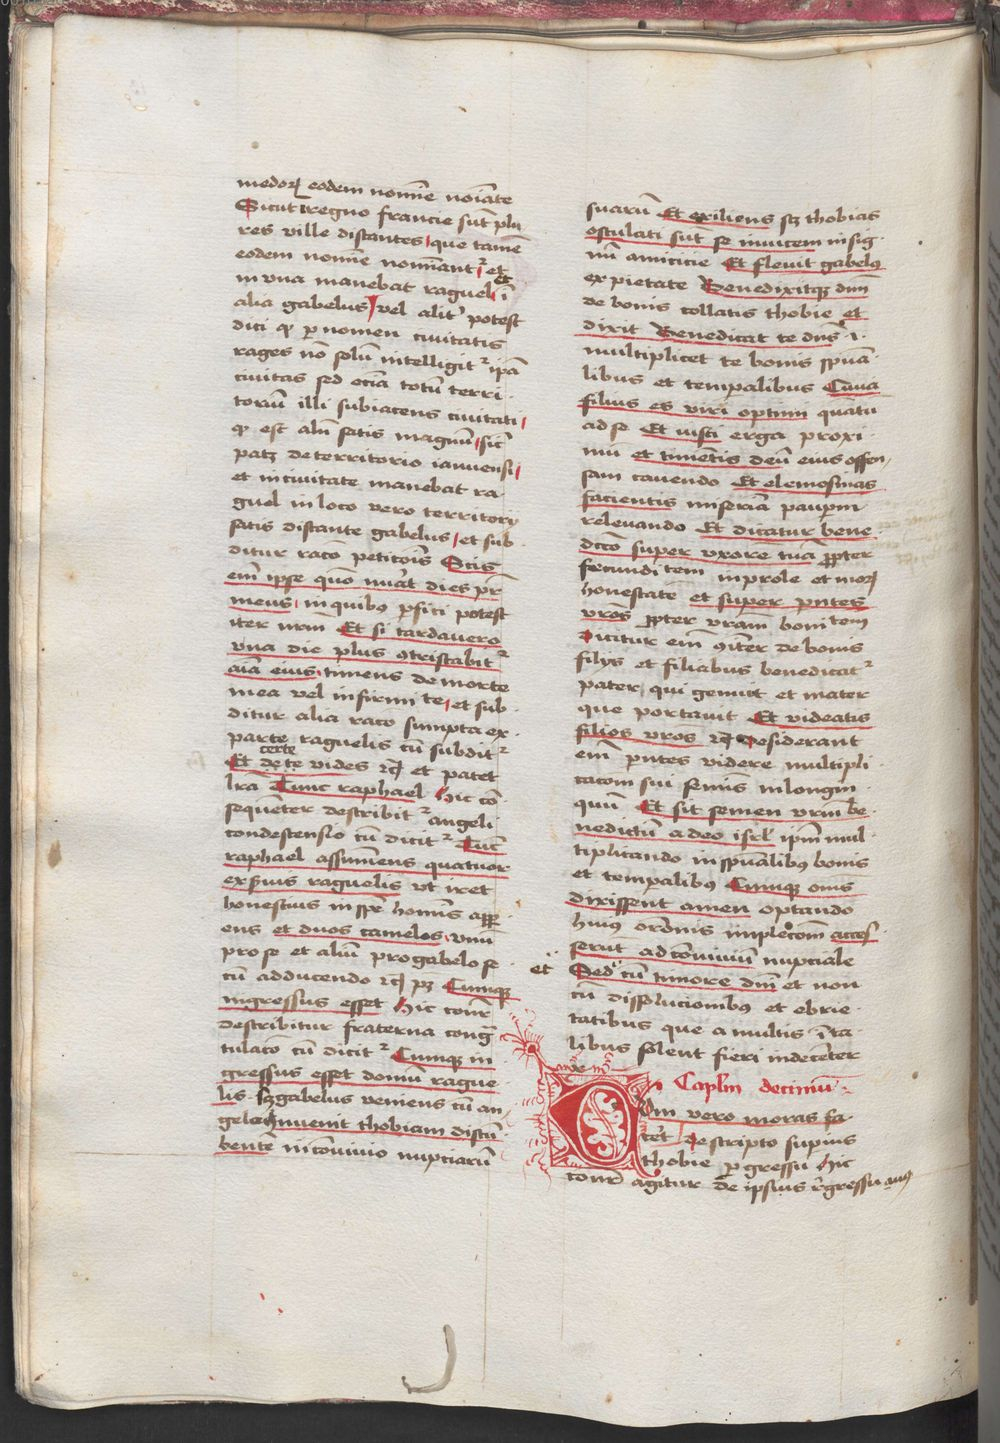 medoꝝ eodem nomīe noīate
Sicut ī regno francie sūt plu
res ville distantes que tamē
eodem nomīe nomīant᷑ et
in vna manebat raguel et ī
alia gabelus vel alit᷑ potest
dici ꝙ ꝑ nomen ciuitatis
rages nō solū intelligit᷑ ipā
ciuitas sed eciā totū terri
toriū illi subiacens ciuitati
ꝙ est alīn satis magnū sic̄
patꝫ de territorio ianuensi
et in ciuitate manebat ra
guel in loco vero territory
satis distante gabelus et sub
ditur raco peticōis Scis
em̄ ipse qm̄o nūat dies pr̄
meus in quibꝰ ꝑfici potest
iter nr̄m Et si tardauero
vna die plus ꝯtristabit᷑
aīa eius timens de morte
mea vel infirmitate et sub
ditur alia raco sumpta ex
parte raguelis cū subdit᷑
Et certe vides rcꝫ et patet
lrā Tunc raphael Hic cō
sequēter describit᷑ angeli
condescensio cū dicit᷑ Tūc
raphael assumens quatuor
ex ẜuis raguelis vt iret
honestius in spē homīs appar
ens et duos camelos vnū
pro se et aliū pro gabelo se
cū adducendo rcꝫ pꝫ Cumqꝫ
ingressus esset Hic conr̄
describitur fraterna congr̄a
tulacō cū dicit᷑ Cumqꝫ in
gressus esset domū rague
lis sꝫ gabelus veniens cū an
gelo Inuenit thobiam discū
bentē in cōuiuio nupciarū
suarū Et exiliens sꝫ thobias
osculati sūt se inuicem in sig
nū amicicie Et fleuit gabelus
ex pietate Benedixitqꝫ dm̄
de bonis collatis thobie et
dixit Benedicat te dn̄s .i.
multiplicet te bonis spūa
libus et tempalibus Cuia
filius es viri optimi quatū
ad se Et iusti erga proxi
mū et timētis deū eius offen
sam cauendo Et elemosinas
facientis miseriā pauperū
releuando Et dicatur bene
dictō super vxorē tuā ꝓpter
fecunditem in prole et moꝝ
honestate et super pn̄tes
vr̄os ꝓpter vr̄am bonitem
Dicitur em̄ ꝯiter de bonis
filijs et filiabus benedicat᷑
pater qui genuit et mater
que portauit Et videatis
filios vros rcꝫ Desiderant
em̄ pn̄tes videre multipli
cacom sui semīs in longin
quū Et sit semen vrm̄ be
nedictū a deo isrl̄ ipm̄ mul
tiplicando in spūalibꝰ bonis
et tempalibꝰ Cumqꝫ om̄s
dixissent amen optando
huiꝰ ordinis implecōm acces
serūt ad cōuiuiū nupciale
et Sed cū timore dm̄ et non
cū dissolucionibꝰ et ebrie
tatibus que a multis ī ta
libus solent fieri indecēter
Caplm̄ decimū
Cum vero moras fa
ceret Descripto supius
thobie ꝓgressu Hic
conr̄ agitur de ipsius rēgressu